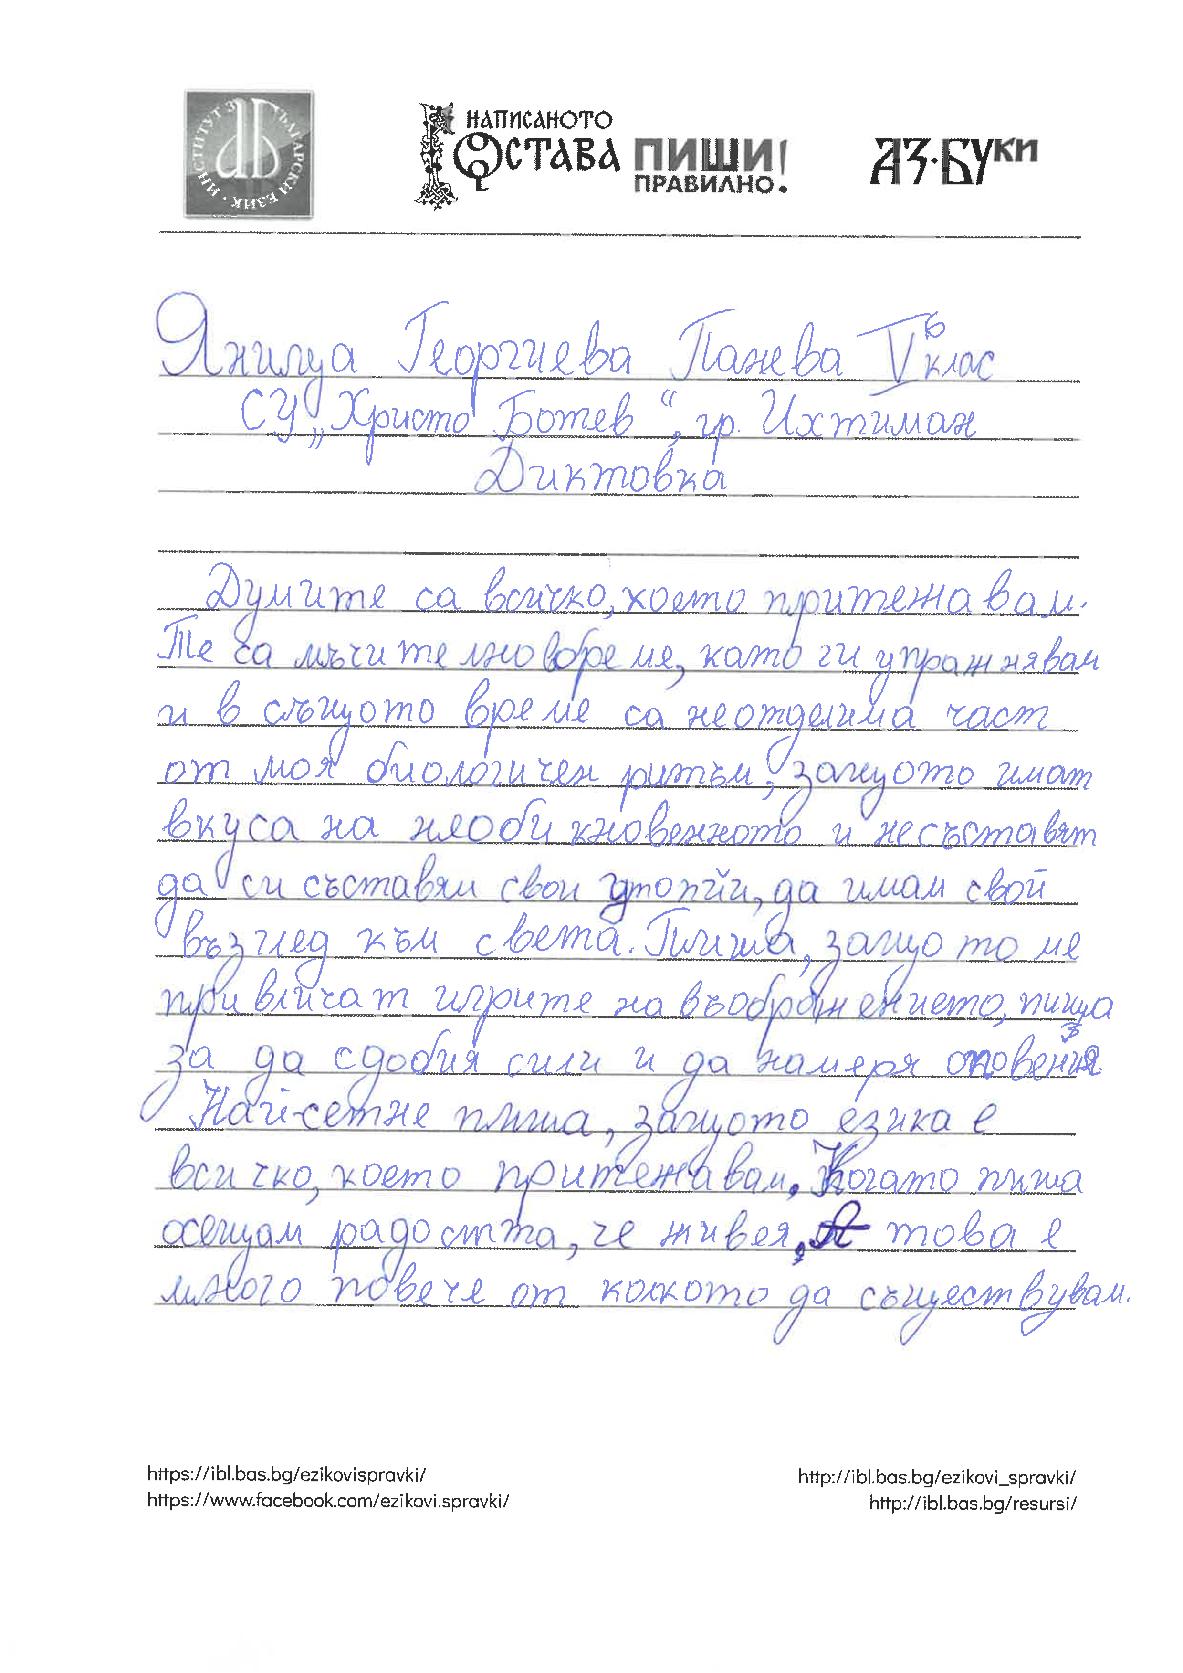 ИНСТИТУТ ЗА БЪЛГАРСКИ ЕЗИК
НАПИСАНОТО
ОСТАВА ПИШИ!
ПРАВИЛНО.
АЗ·БУКИ
Янилца Георгиева Панева V б клас
СУ „Христо Ботев“, гр. Ихтиман
Диктовка
Думите са всичко, което притежавам.
Те са мъчителновобреме, като ги упражнявам
и в същото време са неотделима част
от моя биологичен ритъм, защото имат
вкуса на няобикновенното и несъставят
да си съставям свои утопѝи, да имам свой
възглед към света. Пиша, защото ме
привличат игрите на въображението, пиша
за да сдобия сили и да намеря оповения
Най-сетне пиша, защото езика е
всичко, което притежавам. Когато пиша
осещам радостта, че живея, това е
много повече от колкото да съществувам.
https://ibl.bas.bg/ezikovispravki/
http://ibl.bas.bg/ezikovi_spravki/
https://www.facebook.com/ezikovi.spravki/
http://ibl.bas.bg/resursi/